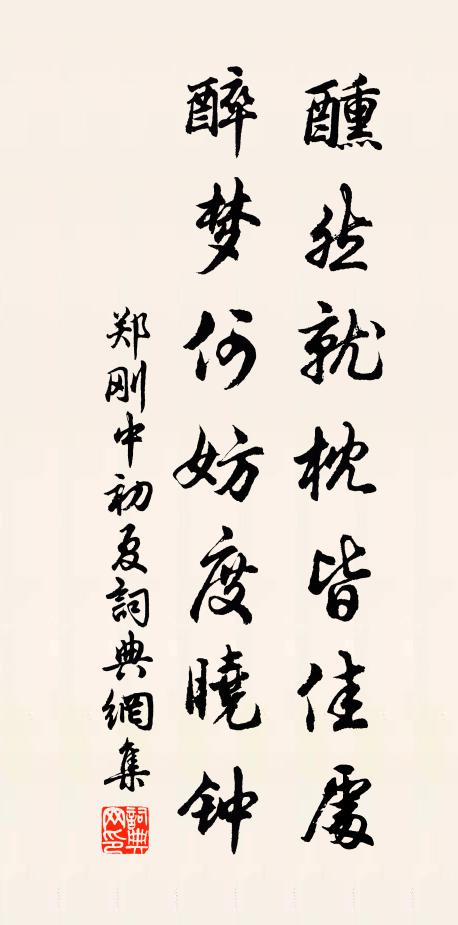 醺然就枕皆佳處
醉梦何妨度曉钟
郑刚中初夏詞典網集
詞典網印